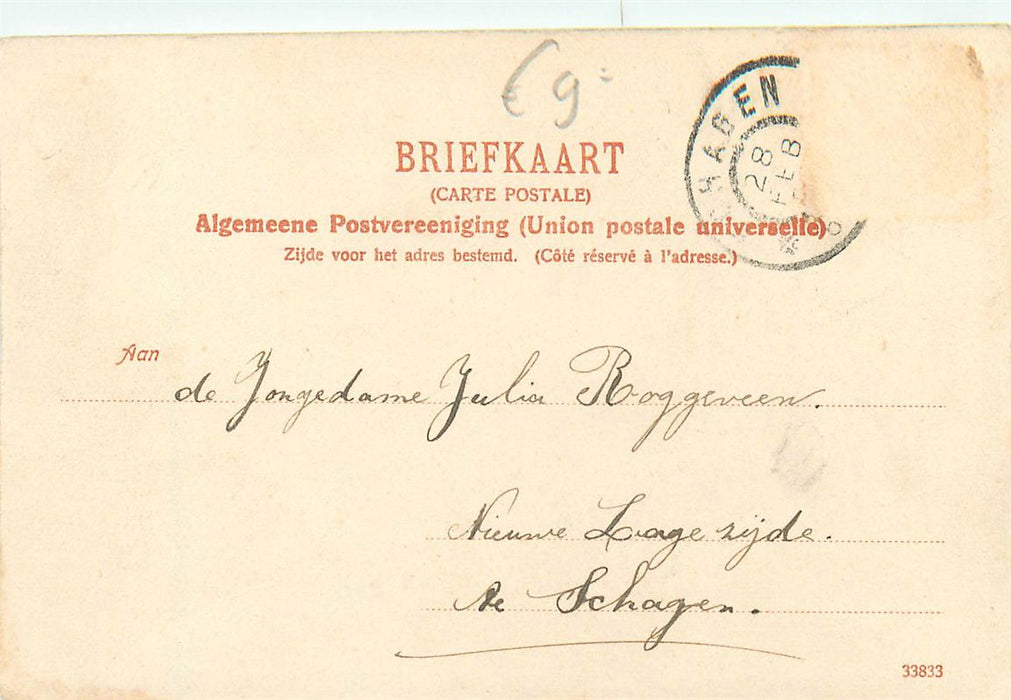 € 9:
HAGEN
28
FEB
6
BRIEFKAART
(CARTE POSTALE)
Algemeene Postvereeniging (Union postale universelle)
Zijde voor het adres bestemd. (Côté réservé à l'adresse.)
Aan
de Jongedame Julia Roggeveen.
Nieuwe Lage zijde.
te Schagen.
33833